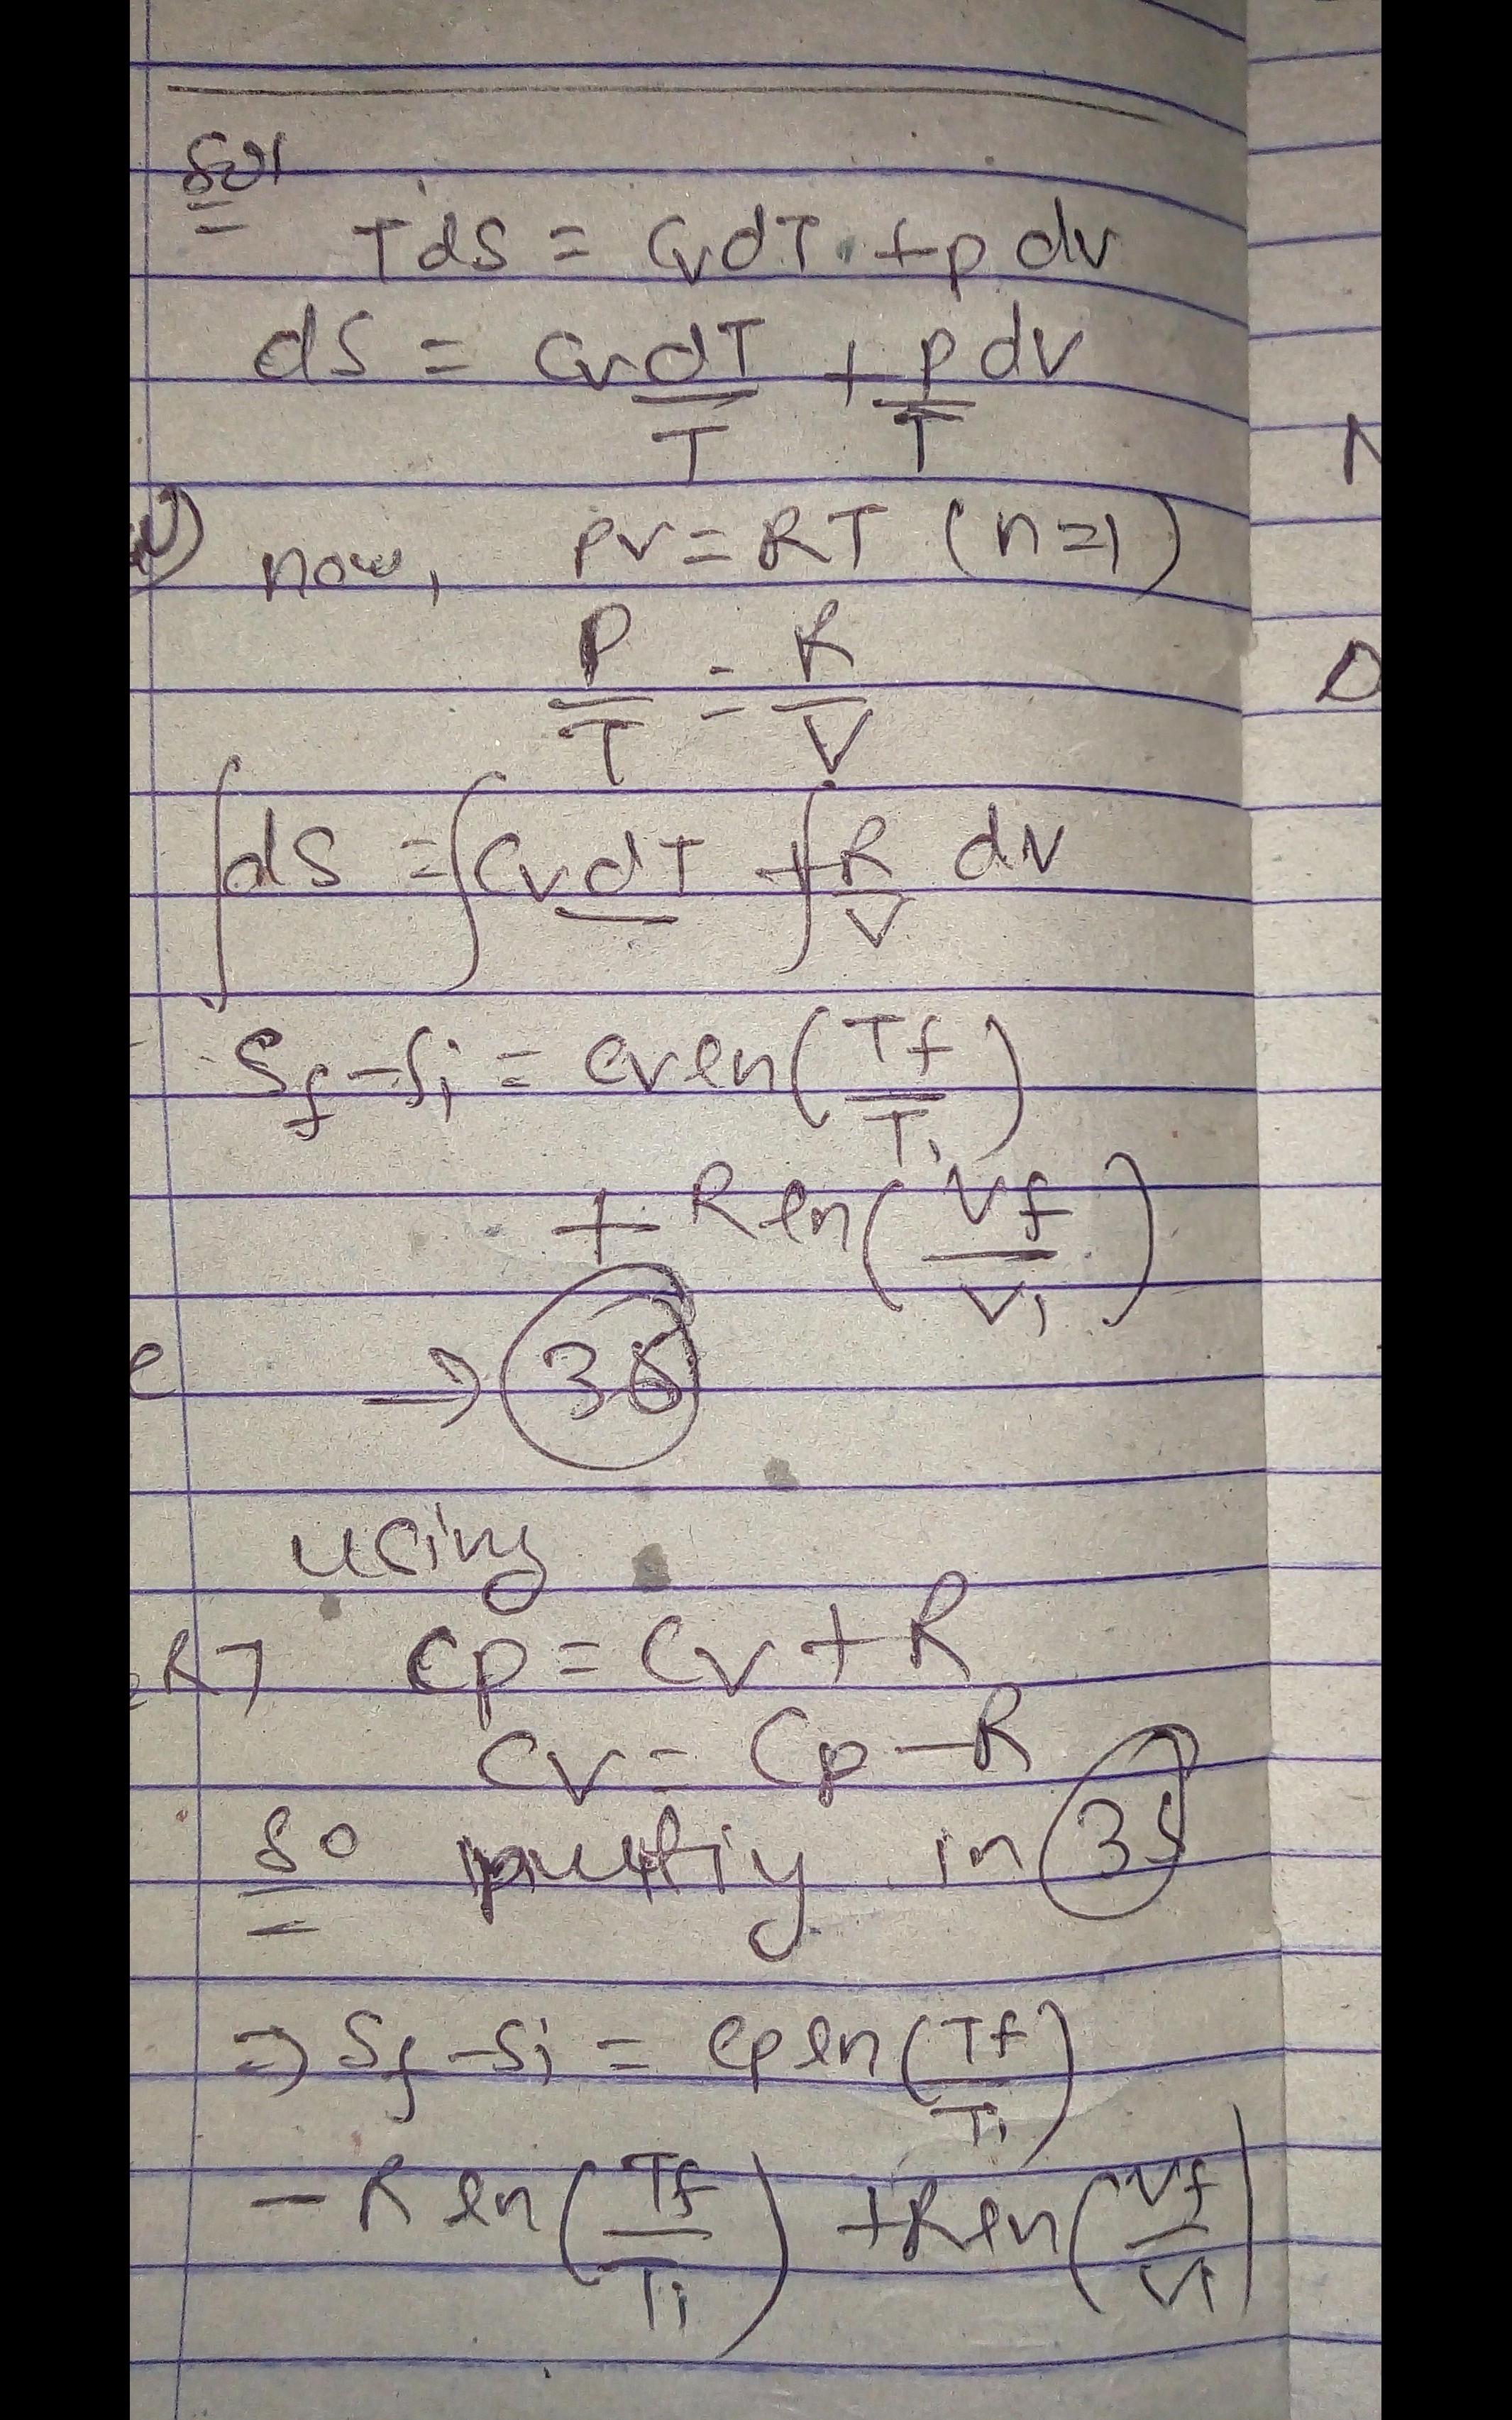 Sol
TdS = CvdT + p dv
dS = Cv dT/T + p/T dv
now, pv = RT (n=1)
P/T = R/V
∫dS = ∫Cv dT + ∫R/V dv
Sf - Si = Cv ln(Tf/Ti)
+ R ln(Vf/Vi)
e → 35
using
RT Cp = Cv + R
Cv = Cp - R
so puttiy in 35
⇒ Sf - Si = Cp ln(Tf/Ti)
- R ln(Tf/Ti) + R ln(Vf/Vi)
N
D